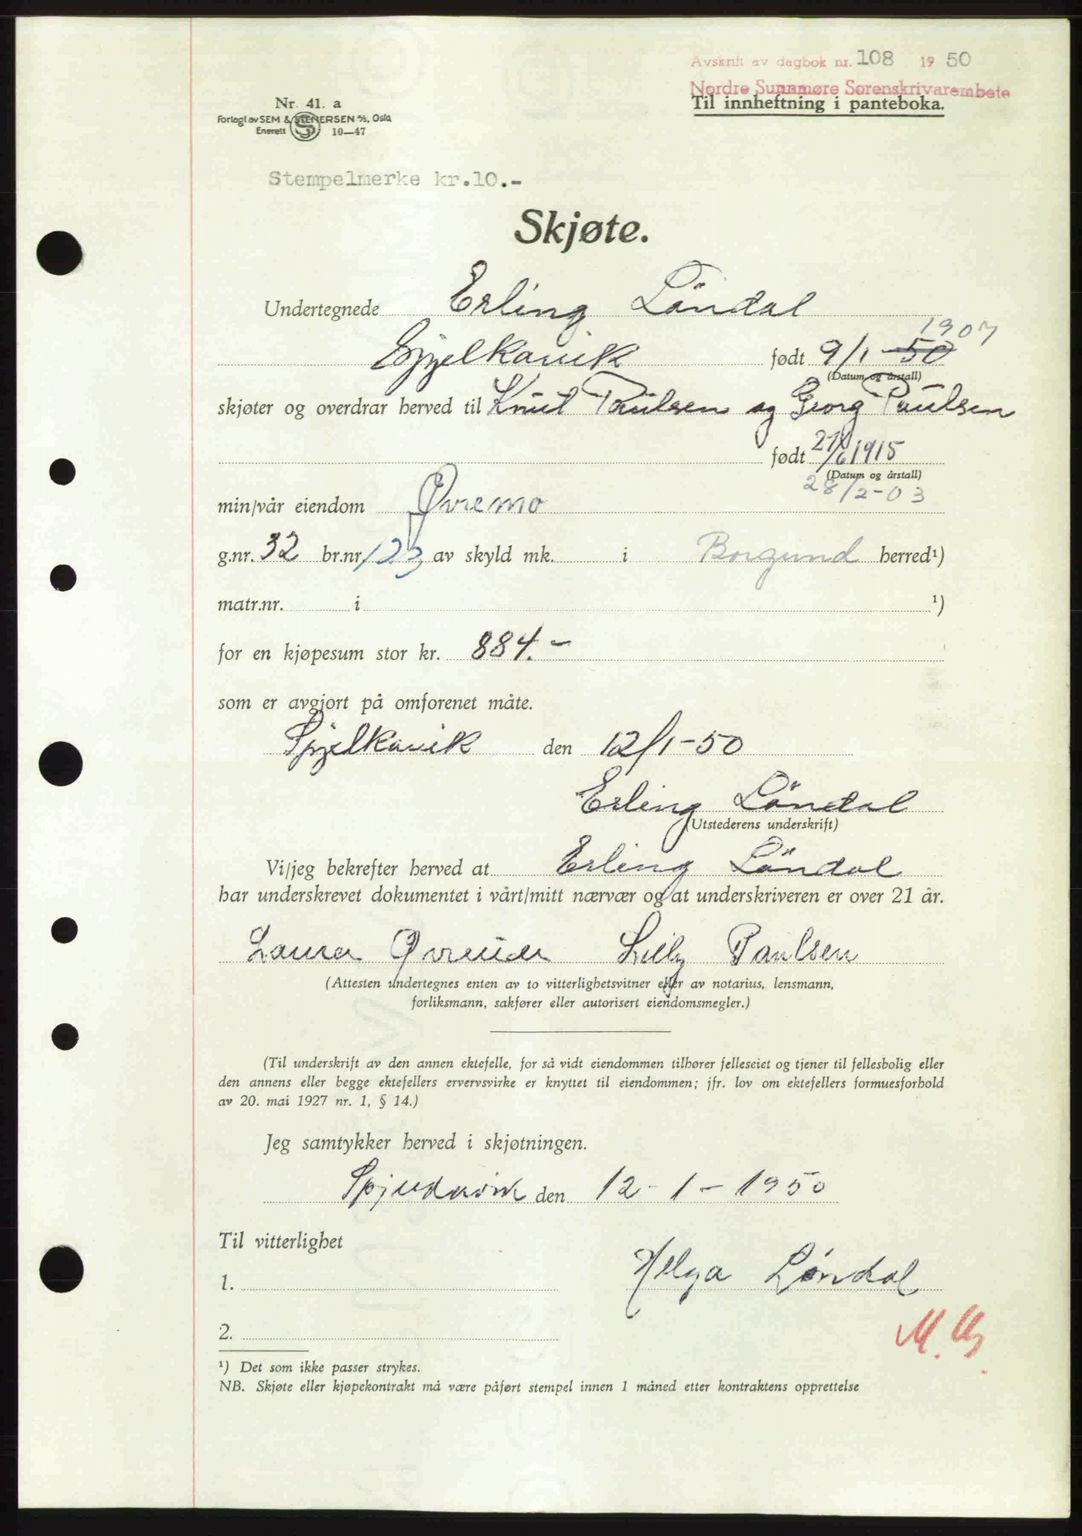 Avskrift av dagbok nr. 108 1950
Nordre Sunnmøre Sorenskrivarembete
Til innheftning i panteboka.
Nr. 41. a
Forlagt av SEM & STENERSEN A/S, Oslo
Enerett 10—47
Stempelmerke kr.10.-
Skjøte.
Undertegnede Erling Löndal
1907
Spjelkavik født 9/1-50
(Datum og årstall)
skjøter og overdrar herved til Knut Paulsen og Georg Paulsen
født 21/6 1915
(Datum og årstall)
28/2-03
min/vår eiendom Øvremo
g.nr. 32 br.nr. 123 av skyld mk. i Borgund herred¹)
matr.nr. i ¹)
for en kjøpesum stor kr. 884.-
som er avgjort på omforenet måte.
Spjelkavik den 12/1-50
Erling Löndal
(Utstederens underskrift)
Vi/jeg bekrefter herved at Erling Löndal
har underskrevet dokumentet i vårt/mitt nærvær og at underskriveren er over 21 år.
Laura Lilly Paulsen
(Attesten undertegnes enten av to vitterlighetsvitner eller av notarius, lensmann,
forliksmann, sakfører eller autorisert eiendomsmegler.)
(Til underskrift av den annen ektefelle, for så vidt eiendommen tilhører felleseiet og tjener til fellesbolig eller
den annens eller begge ektefellers ervervsvirke er knyttet til eiendommen; jfr. lov om ektefellers formuesforhold
av 20. mai 1927 nr. 1, § 14.)
Jeg samtykker herved i skjøtningen.
den 12-1-1950
Til vitterlighet
Helga Løndal
1.
2.
¹) Det som ikke passer strykes.
NB. Skjøte eller kjøpekontrakt må være påført stempel innen 1 måned etter kontraktens opprettelse